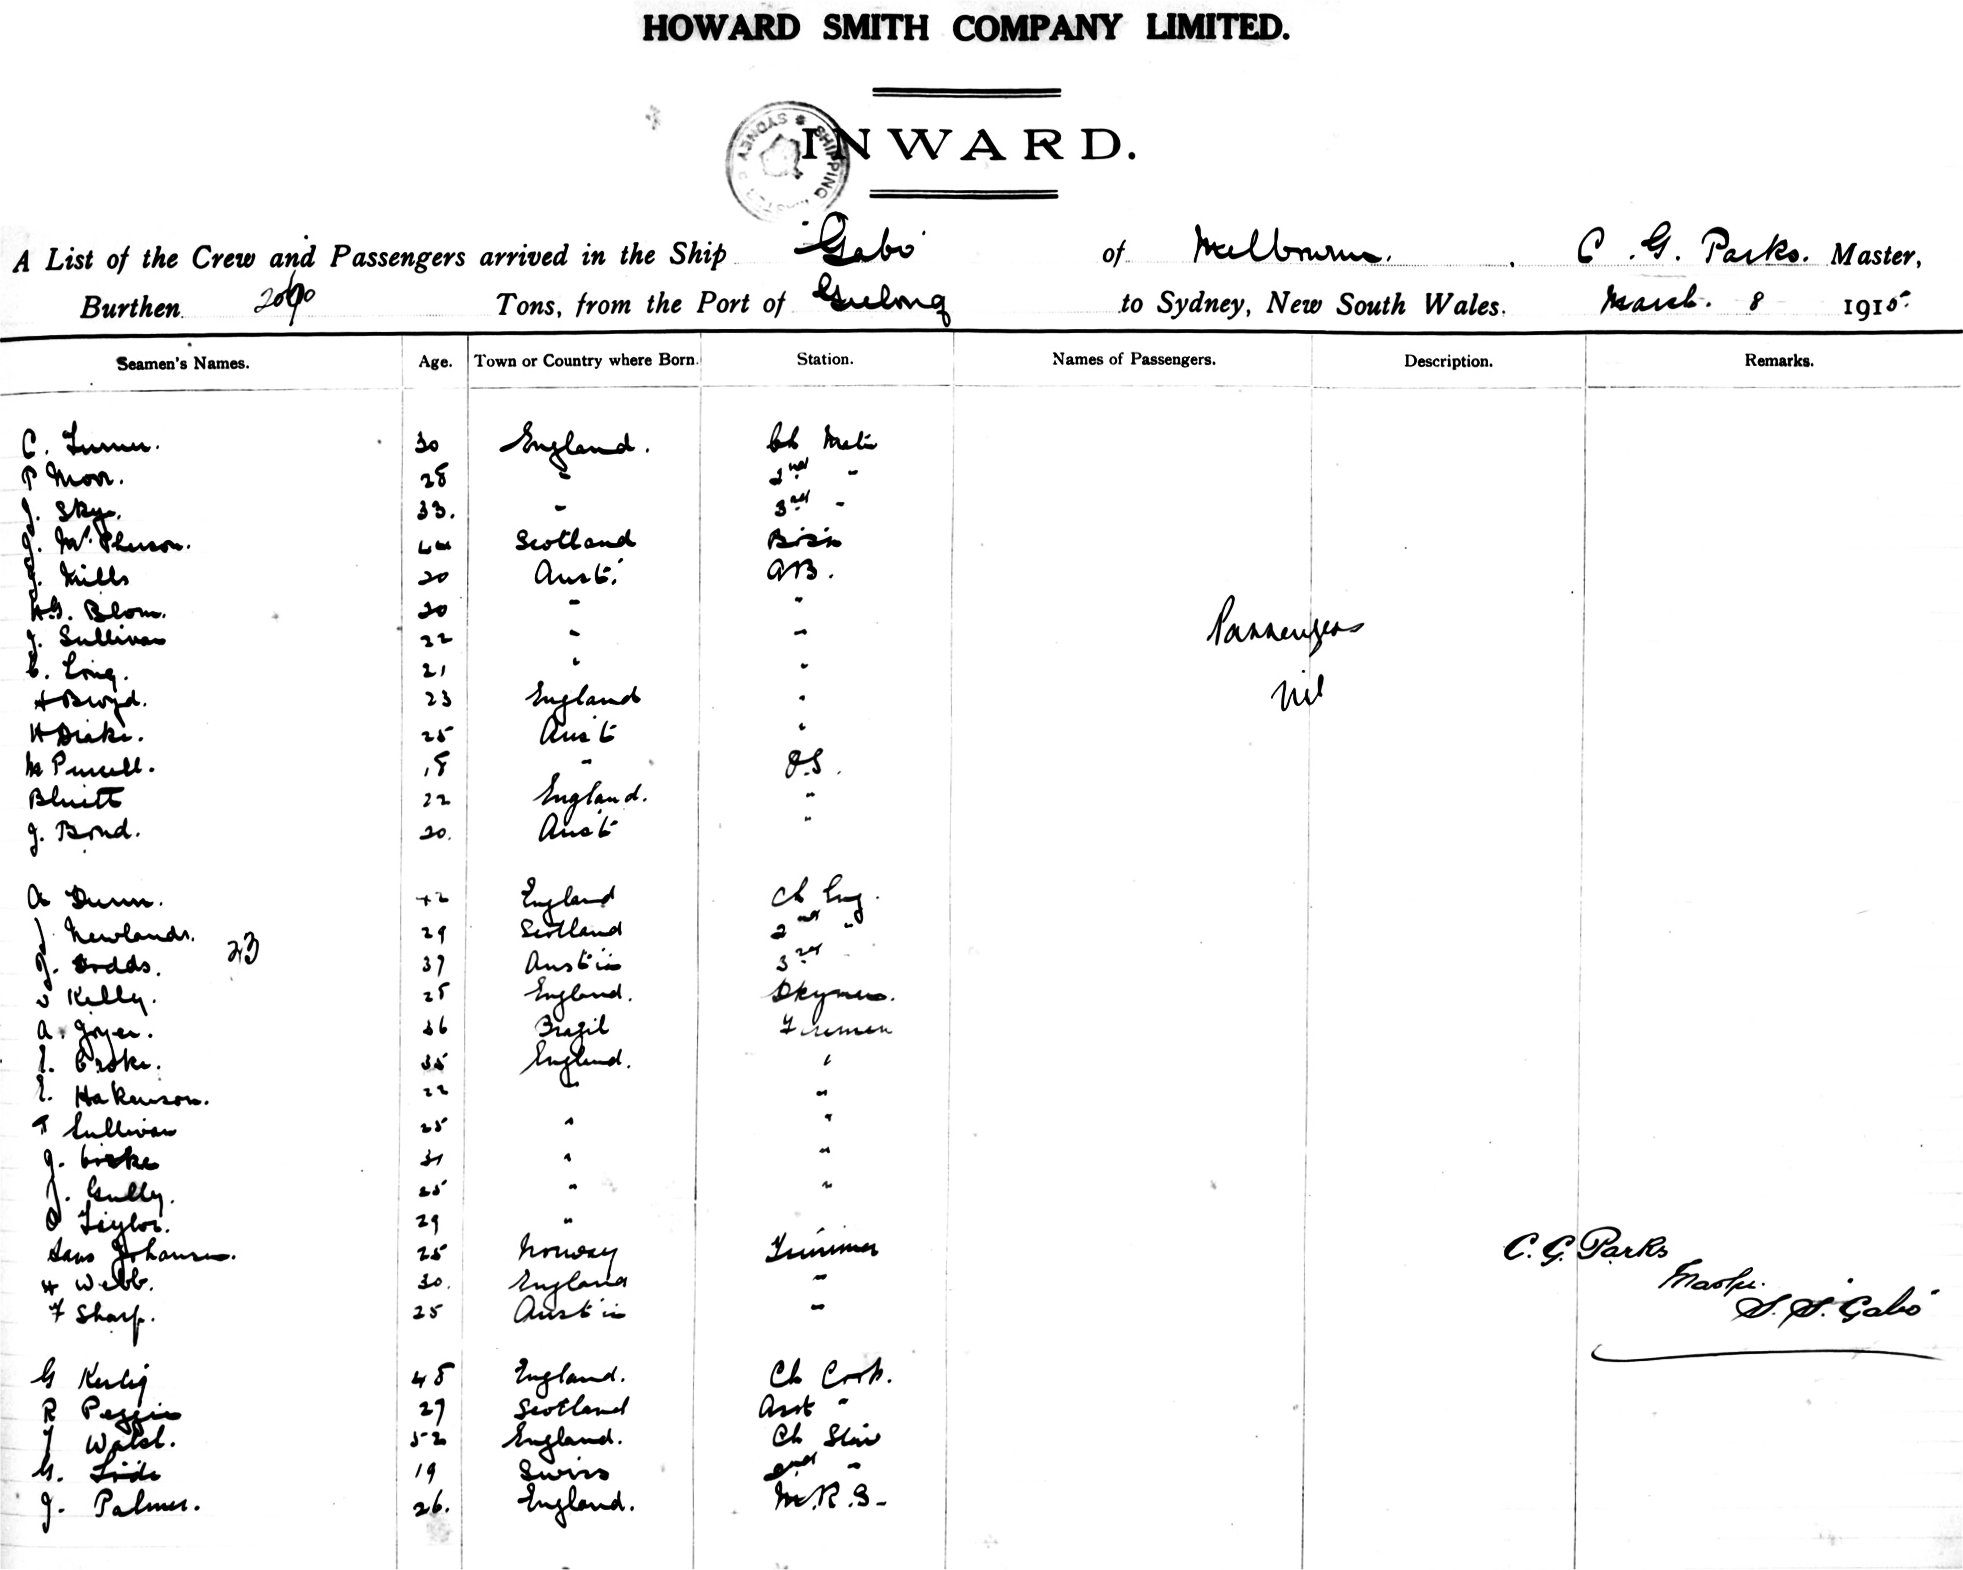 HOWARD SMITH COMPANY LIMITED.
SHIPPING MASTER SYDNEY
INWARD.
A List of the Crew and Passengers arrived in the Ship "Gabo" of Melbourne. C. G. Parks. Master,
Burthen Tons, from the Port of Geelong to Sydney, New South Wales. March. 8 1915.
Seamen's Names. Age. Town or Country where Born. Station. Names of Passengers. Description. Remarks.
C. Turner. 30 England. Ch Mate
P Morr. 28 " 2nd "
J. Skye. 33. " 3rd "
J. McPherson. 44 Scotland Bosn
J. Mills 20 Aust. AB.
H.G. Blom. 20 " "
J. Sullivan 22 " "
C. Long. 21 " "
H Boyd. 23 England "
H Drake. 25 Aust "
M Purcell. 18 " O.S.
Bluitt 22 England. "
J. Bond. 20. Aust "
Passengers
Nil
A Dunn. 42 England Ch Eng.
J Newlands. 29 Scotland 2nd "
23
J. Dodds. 37 Aust'lia 3rd "
J Kelly. 25 England. Dkyman.
A. Joyer. 36 Brazil Firemen
E. Croke. 35 England. "
E. Hakenson. 22 " "
T Sullivan 25 " "
J. Croke 31 " "
J. Gully. 25 " "
C Taylor. 29 "
Hans Johansen. 25 Norway Trimmer
H Webb. 30. England "
F Sharp. 25 Aust'lia "
C. G. Parks
Master.
S. S. "Gabo"
G 48 England. Ch Cook.
R 27 Scotland Asst "
J Walsh. 52 England. Ch Stew
G. 19 Swiss 2nd "
J. Palmer. 26. England. M.R.S.